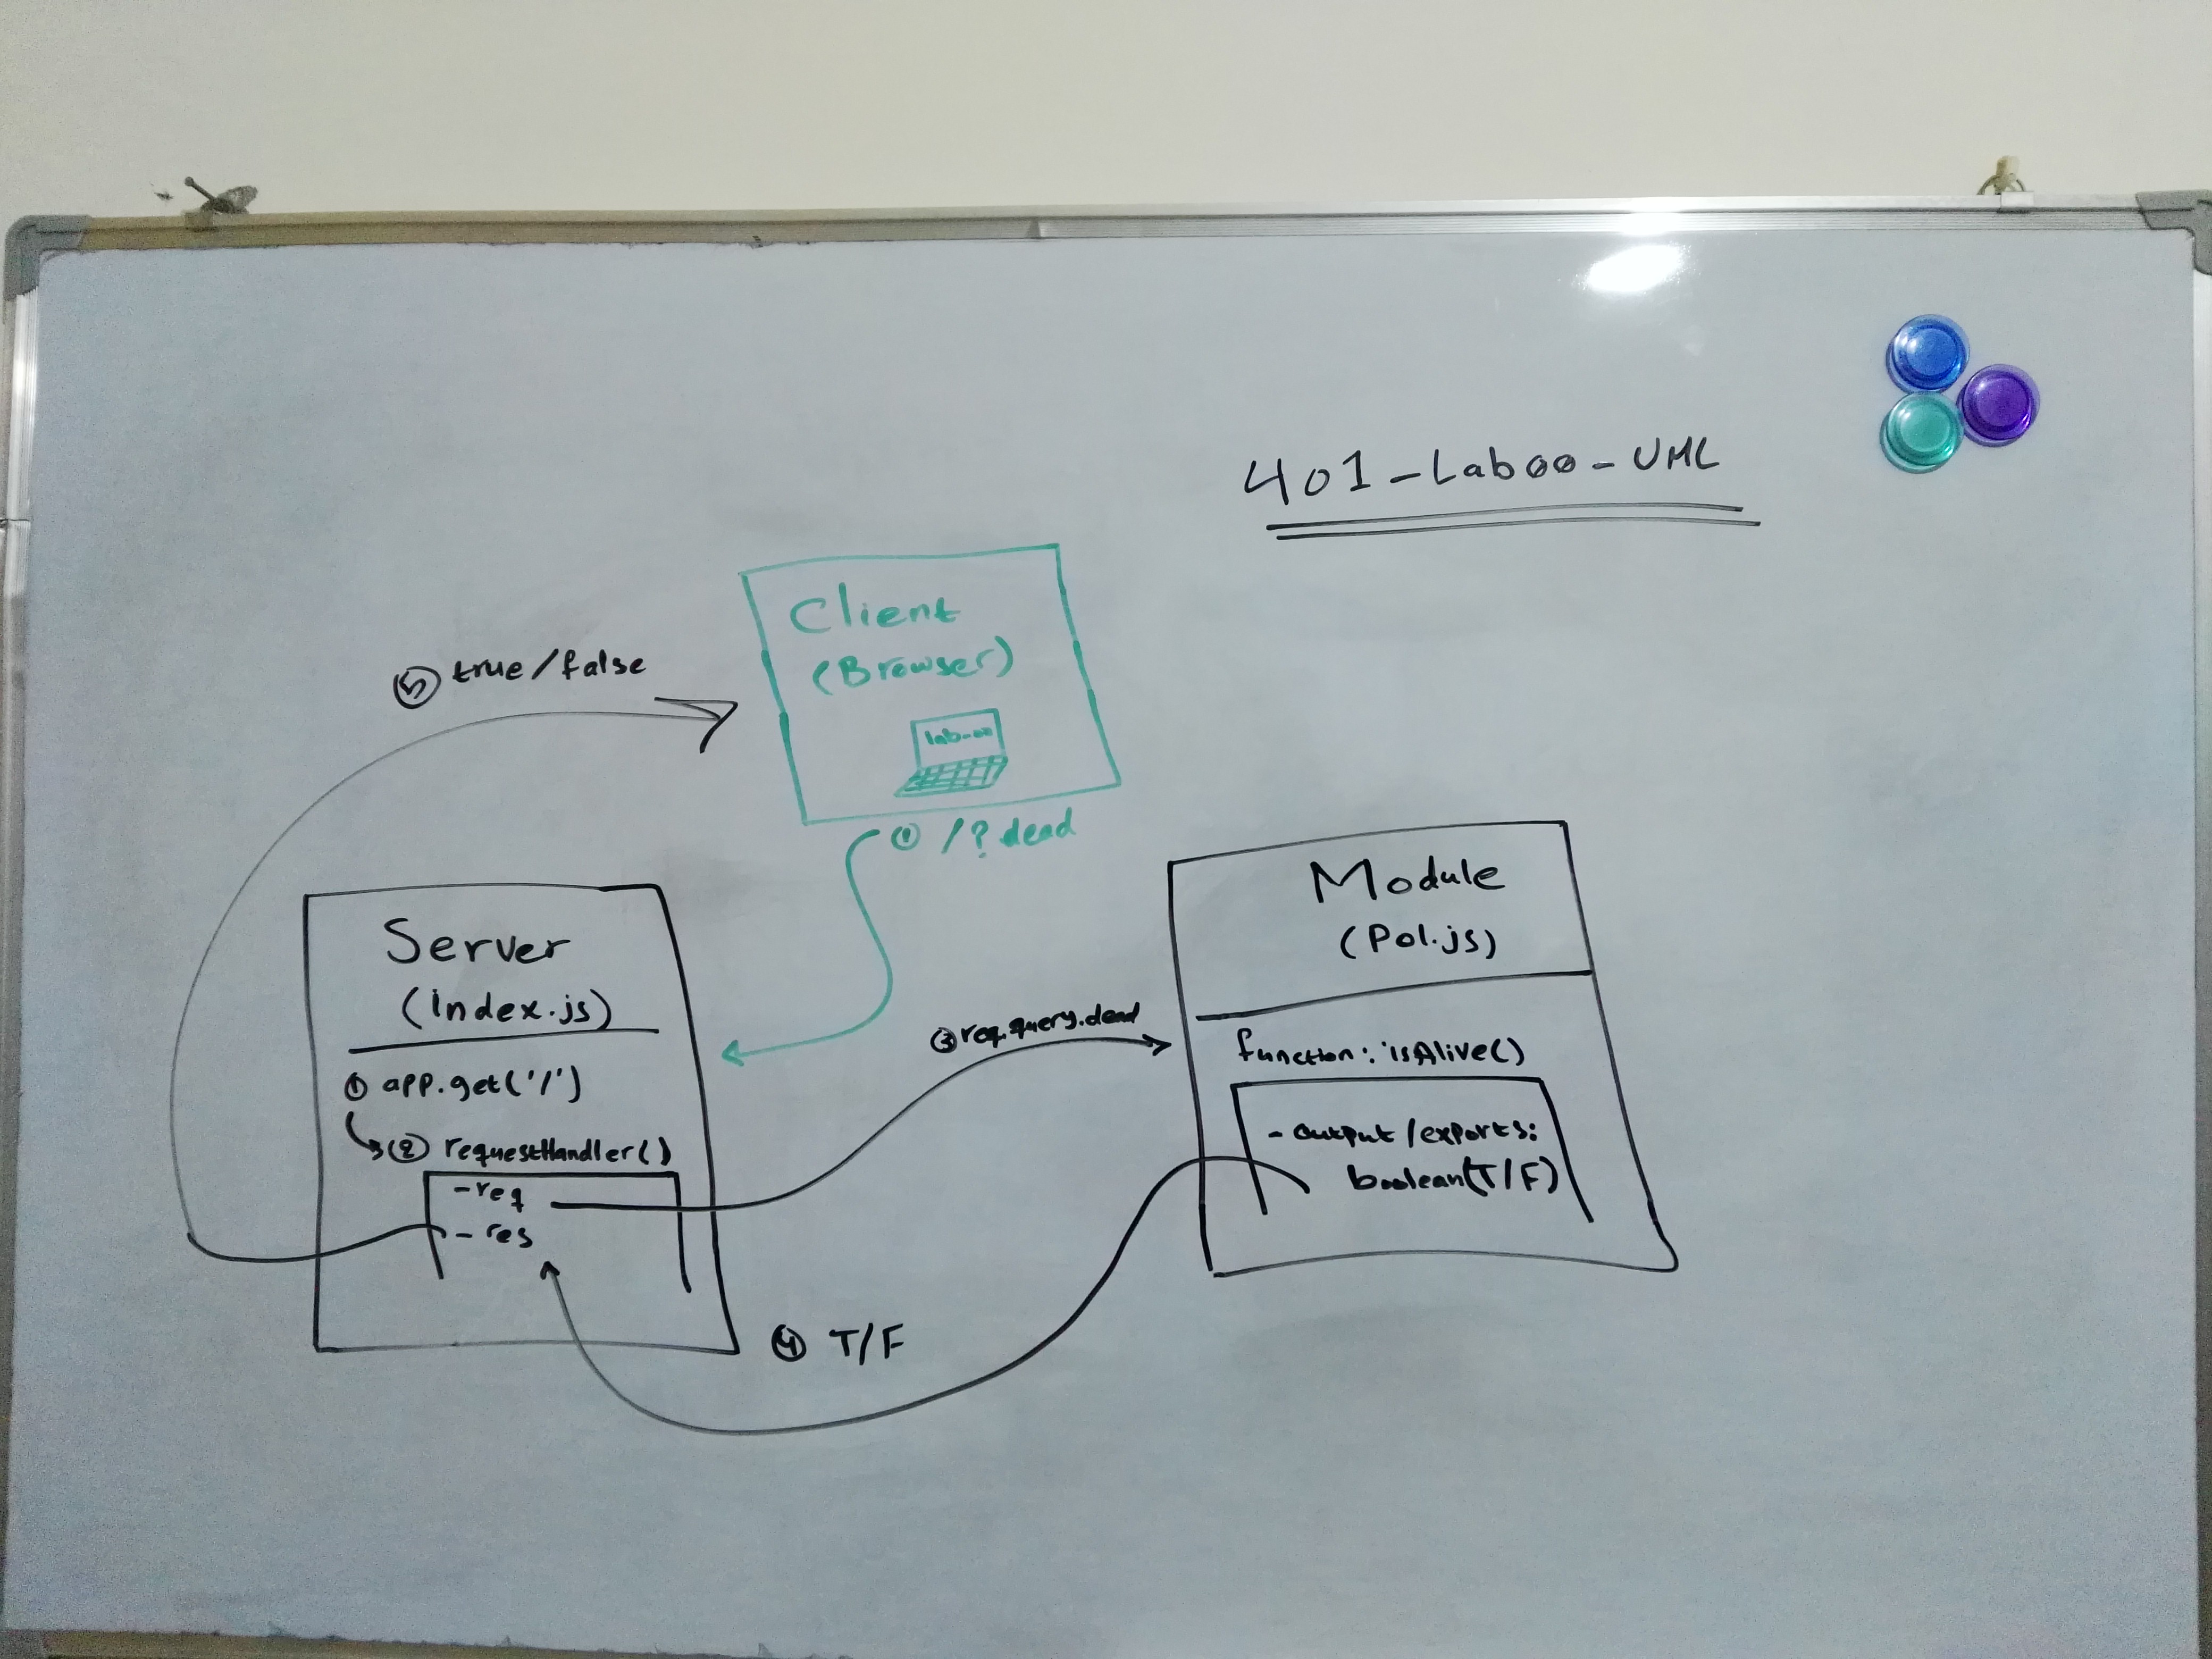 401-Lab00-UML
Client
(Browser)
lab-00
① /?dead
⑤ true/false
Server
(index.js)
① app.get('/')
② requestHandler()
-req
-res
③ req.query.dead
Module
(Pol.js)
function: isAlive()
-output/exports:
boolean(T/F)
④ T/F